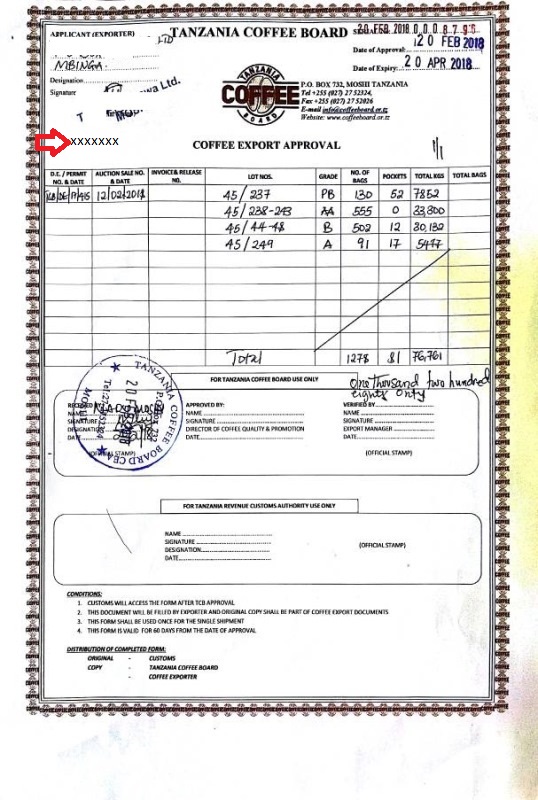 APPLICANT (EXPORTER)
TANZANIA COFFEE BOARD
20 FEB 2018
Date of Approval: 20 FEB 2018
Date of Expiry: 20 APR 2018
MBINGA
Designation
Signature
Ltd.
TANZANIA
COFFEE
BOARD
P.O. BOX 732, MOSHI TANZANIA
Tel +255 (027) 27 52324,
Fax +255 (027) 27 52026
E-mail info@coffeeboard.or.tz
Website: www.coffeeboard.or.tz
XXXXXXX
COFFEE EXPORT APPROVAL
1/1
D.E. / PERMIT NO. & DATE AUCTION SALE NO. & DATE INVOICE & RELEASE NO. LOT NOS. GRADE NO. OF BAGS POCKETS TOTAL KGS TOTAL BAGS
12/02/2018 45/237 PB 130 52 7852
45/238-243 AA 555 0 33,300
45/44-48 B 502 12 30,132
45/249 A 91 17 5477
Total 1278 81 76,761
FOR TANZANIA COFFEE BOARD USE ONLY
One thousand two hundred
eighty only
TANZANIA COFFEE BOARD
MOSHI
APPROVED BY:
NAME
SIGNATURE
DIRECTOR OF COFFEE QUALITY & PROMOTION
DATE
VERIFIED BY:
NAME
SIGNATURE
EXPORT MANAGER
DATE
(OFFICIAL STAMP)
(OFFICIAL STAMP)
FOR TANZANIA REVENUE CUSTOMS AUTHORITY USE ONLY
NAME
SIGNATURE
DESIGNATION
DATE
(OFFICIAL STAMP)
CONDITIONS:
1. CUSTOMS WILL ACCESS THE FORM AFTER TCB APPROVAL
2. THIS DOCUMENT WILL BE FILLED BY EXPORTER AND ORIGINAL COPY SHALL BE PART OF COFFEE EXPORT DOCUMENTS
3. THIS FORM SHALL BE USED ONCE FOR THE SINGLE SHIPMENT
4. THIS FORM IS VALID FOR 60 DAYS FROM THE DATE OF APPROVAL
DISTRIBUTION OF COMPLETED FORM:
ORIGINAL - CUSTOMS
COPY - TANZANIA COFFEE BOARD
- COFFEE EXPORTER